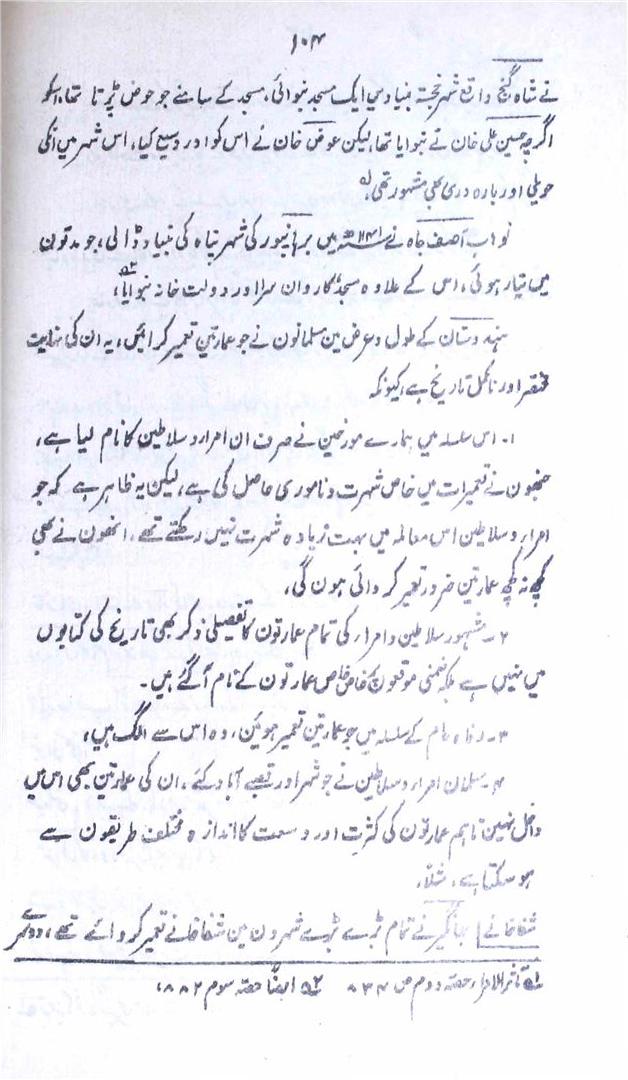 ۱۰۴
نے شاہ گنج واقع شہر خجستہ بنیاد میں ایک مسجد بنوائی، مسجد کے سامنے جو حوض پڑتا تھا، اسکو
اگرچہ حسین علی خان نے بنوایا تھا، لیکن عوض خان نے اس کو اور وسیع کیا، اس شہر میں انکی
حویلی اور بارہ دری بھی مشہور تھی، لہ
نواب آصف جاہ نے ۱۱۴۱ھ میں برہانپور کی شہر پناہ کی بنیاد ڈالی، جو مدتون
میں تیار ہوئی، اس کے علاوہ مسجد، کاروان سرا اور دولت خانہ بنوایا، ۲ہ
ہندوستان کے طول و عرض مین مسلمانون نے جو عمارتین تعمیر کرائیں، یہ ان کی نہایت
مختصر اور نامکمل تاریخ ہے، کیونکہ
۱- اس سلسلہ میں ہمارے مورخین نے صرف ان امراء و سلاطین کا نام لیا ہے،
جنھون نے تعمیرات میں خاص شہرت و ناموری حاصل کی ہے، لیکن یہ ظاہر ہے کہ جو
امراء و سلاطین اس معاملہ میں بہت زیادہ شہرت نہیں رکھتے تھے، انھون نے بھی
کچھ نہ کچھ عمارتین ضرور تعمیر کروائی ہون گی،
۲- مشہور سلاطین و امراء کی تمام عمارتون کا تفصیلی ذکر بھی تاریخ کی کتابوں
میں نہیں ہے بلکہ ضمنی موقعون پر خاص خاص عمارتون کے نام آگئے ہیں۔
۳- رفاہ عام کے سلسلہ میں جو عمارتین تعمیر ہوئین، وہ اس سے الگ ہیں،
۴- مسلمان امراء و سلاطین نے جو شہر اور قصبے آباد کئے، ان کی عمارتین بھی اس میں
داخل نہین تاہم عمارتون کی کثرت اور وسعت کا اندازہ مختلف طریقون سے
ہو سکتا ہے، مثلاً،
شفاخانے | جہانگیر نے تمام بڑے بڑے شہرون مین شفاخانے تعمیر کروائے تھے،
لہ مآثر الامراء حصہ دوم ص ۸۳۴ ۲ہ ایضاً حصہ سوم ۸۸۲،